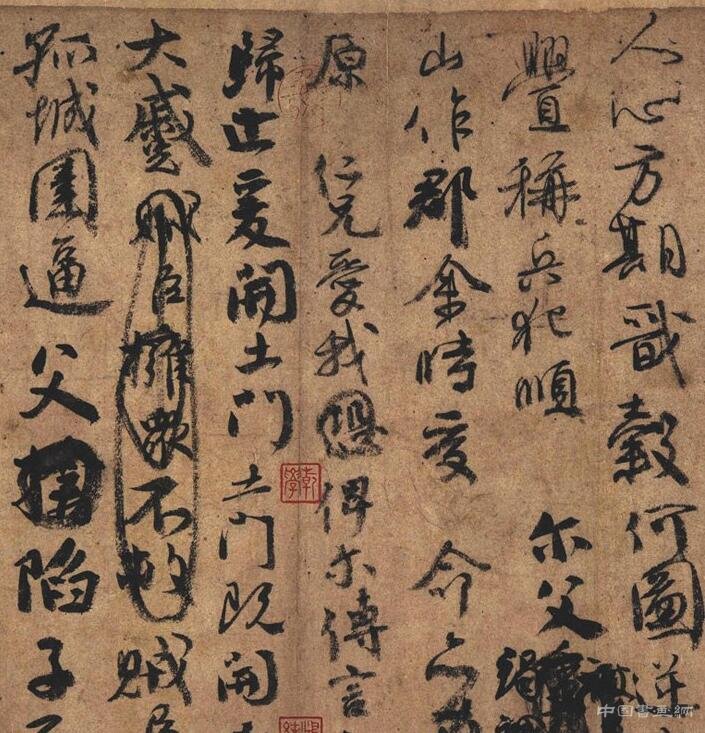 人心方期戩穀何圖逆
舋稱兵犯順 尔父竭
山作郡余時受 命亦
原 仁兄愛我恐俾尔傳言
歸止爰開土門土門既開
大蹙賊臣擁衆不救賊臣
孤城圍逼父擒陷子
乾學
中国書畫網